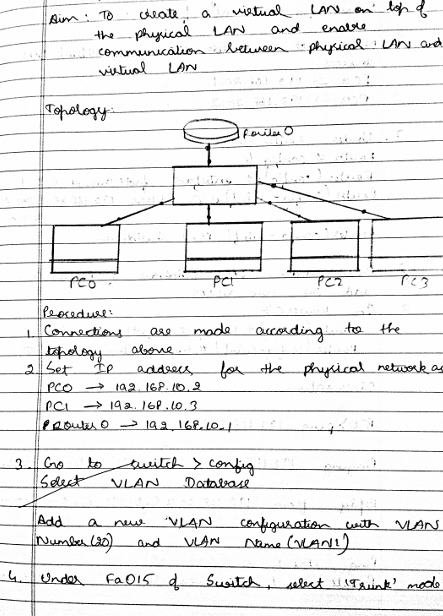 Aim: To create a virtual LAN on top of
the physical LAN and enable
communication between physical LAN and
virtual LAN
Topology:
Router 0
PC0 PC1 PC2 PC3
Procedure:
1. Connections are made according to the
topology above.
2. Set IP address for the physical network as
PC0 → 192.168.10.2
PC1 → 192.168.10.3
Router 0 → 192.168.10.1
3. Go to switch > config
Select VLAN Database
Add a new VLAN configuration with VLAN
Number (20) and VLAN Name (VLAN1)
4. Under Fa015 of Switch, select 'Trunk' mode